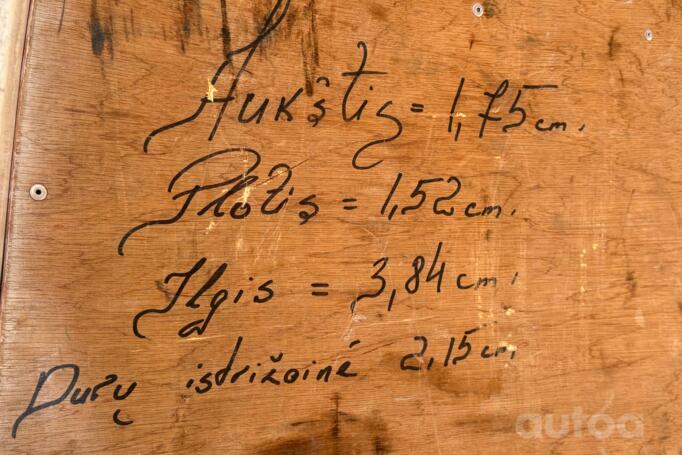 Aukštis = 1,75 cm.
Plotis = 1,52 cm.
Ilgis = 3,84 cm.
Durų istrižoinė 2,15 cm
autoa